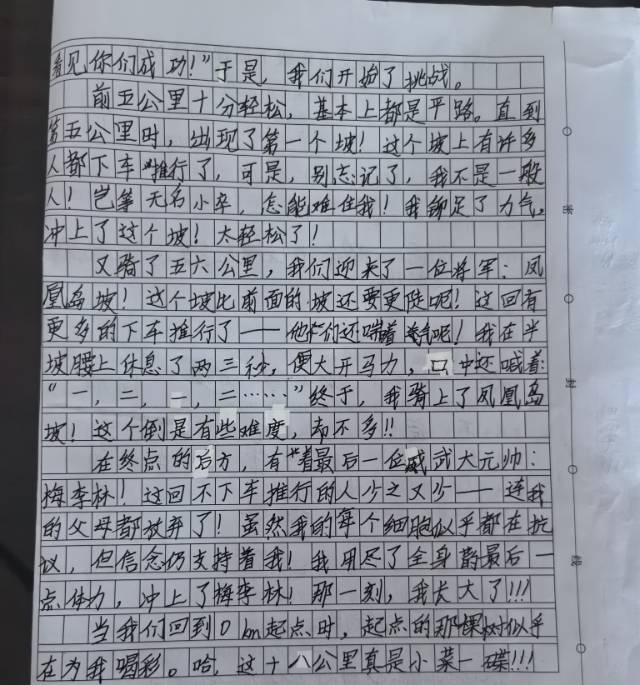 看见你们成功！”于是，我们开始了挑战。
前五公里十分轻松，基本上都是平路。直到
第五公里时，出现了第一个坡！这个坡上有许多
人都下车推行了，可是，别忘记了，我不是一般
人！岂等无名小卒，怎能难住我！我铆足了力气，
冲上了这个坡！太轻松了！
又骑了五六公里，我们迎来了一位将军：凤
凰岛坡！这个坡比前面的坡还要更陡呢！这回有
更多的下车推行了——他们还喘着气呢！我在半
坡腰上休息了两三秒，便大开马力，口中还喊着：
“一，二，一，二……”终于，我骑上了凤凰岛
坡！这个倒是有些难度，却不多！！
在终点的后方，有着最后一位威武大元帅：
梅李林！这回不下车推行的人少之又少——连我
的父母都放弃了！虽然我的每个细胞似乎都在抗
议，但信念仍支持着我！我用尽了全身的最后一
点体力，冲上了梅李林！那一刻，我长大了！！！
当我们回到0km起点时，起点的那棵树似乎
在为我喝彩。哈，这十八公里真是小菜一碟！！！